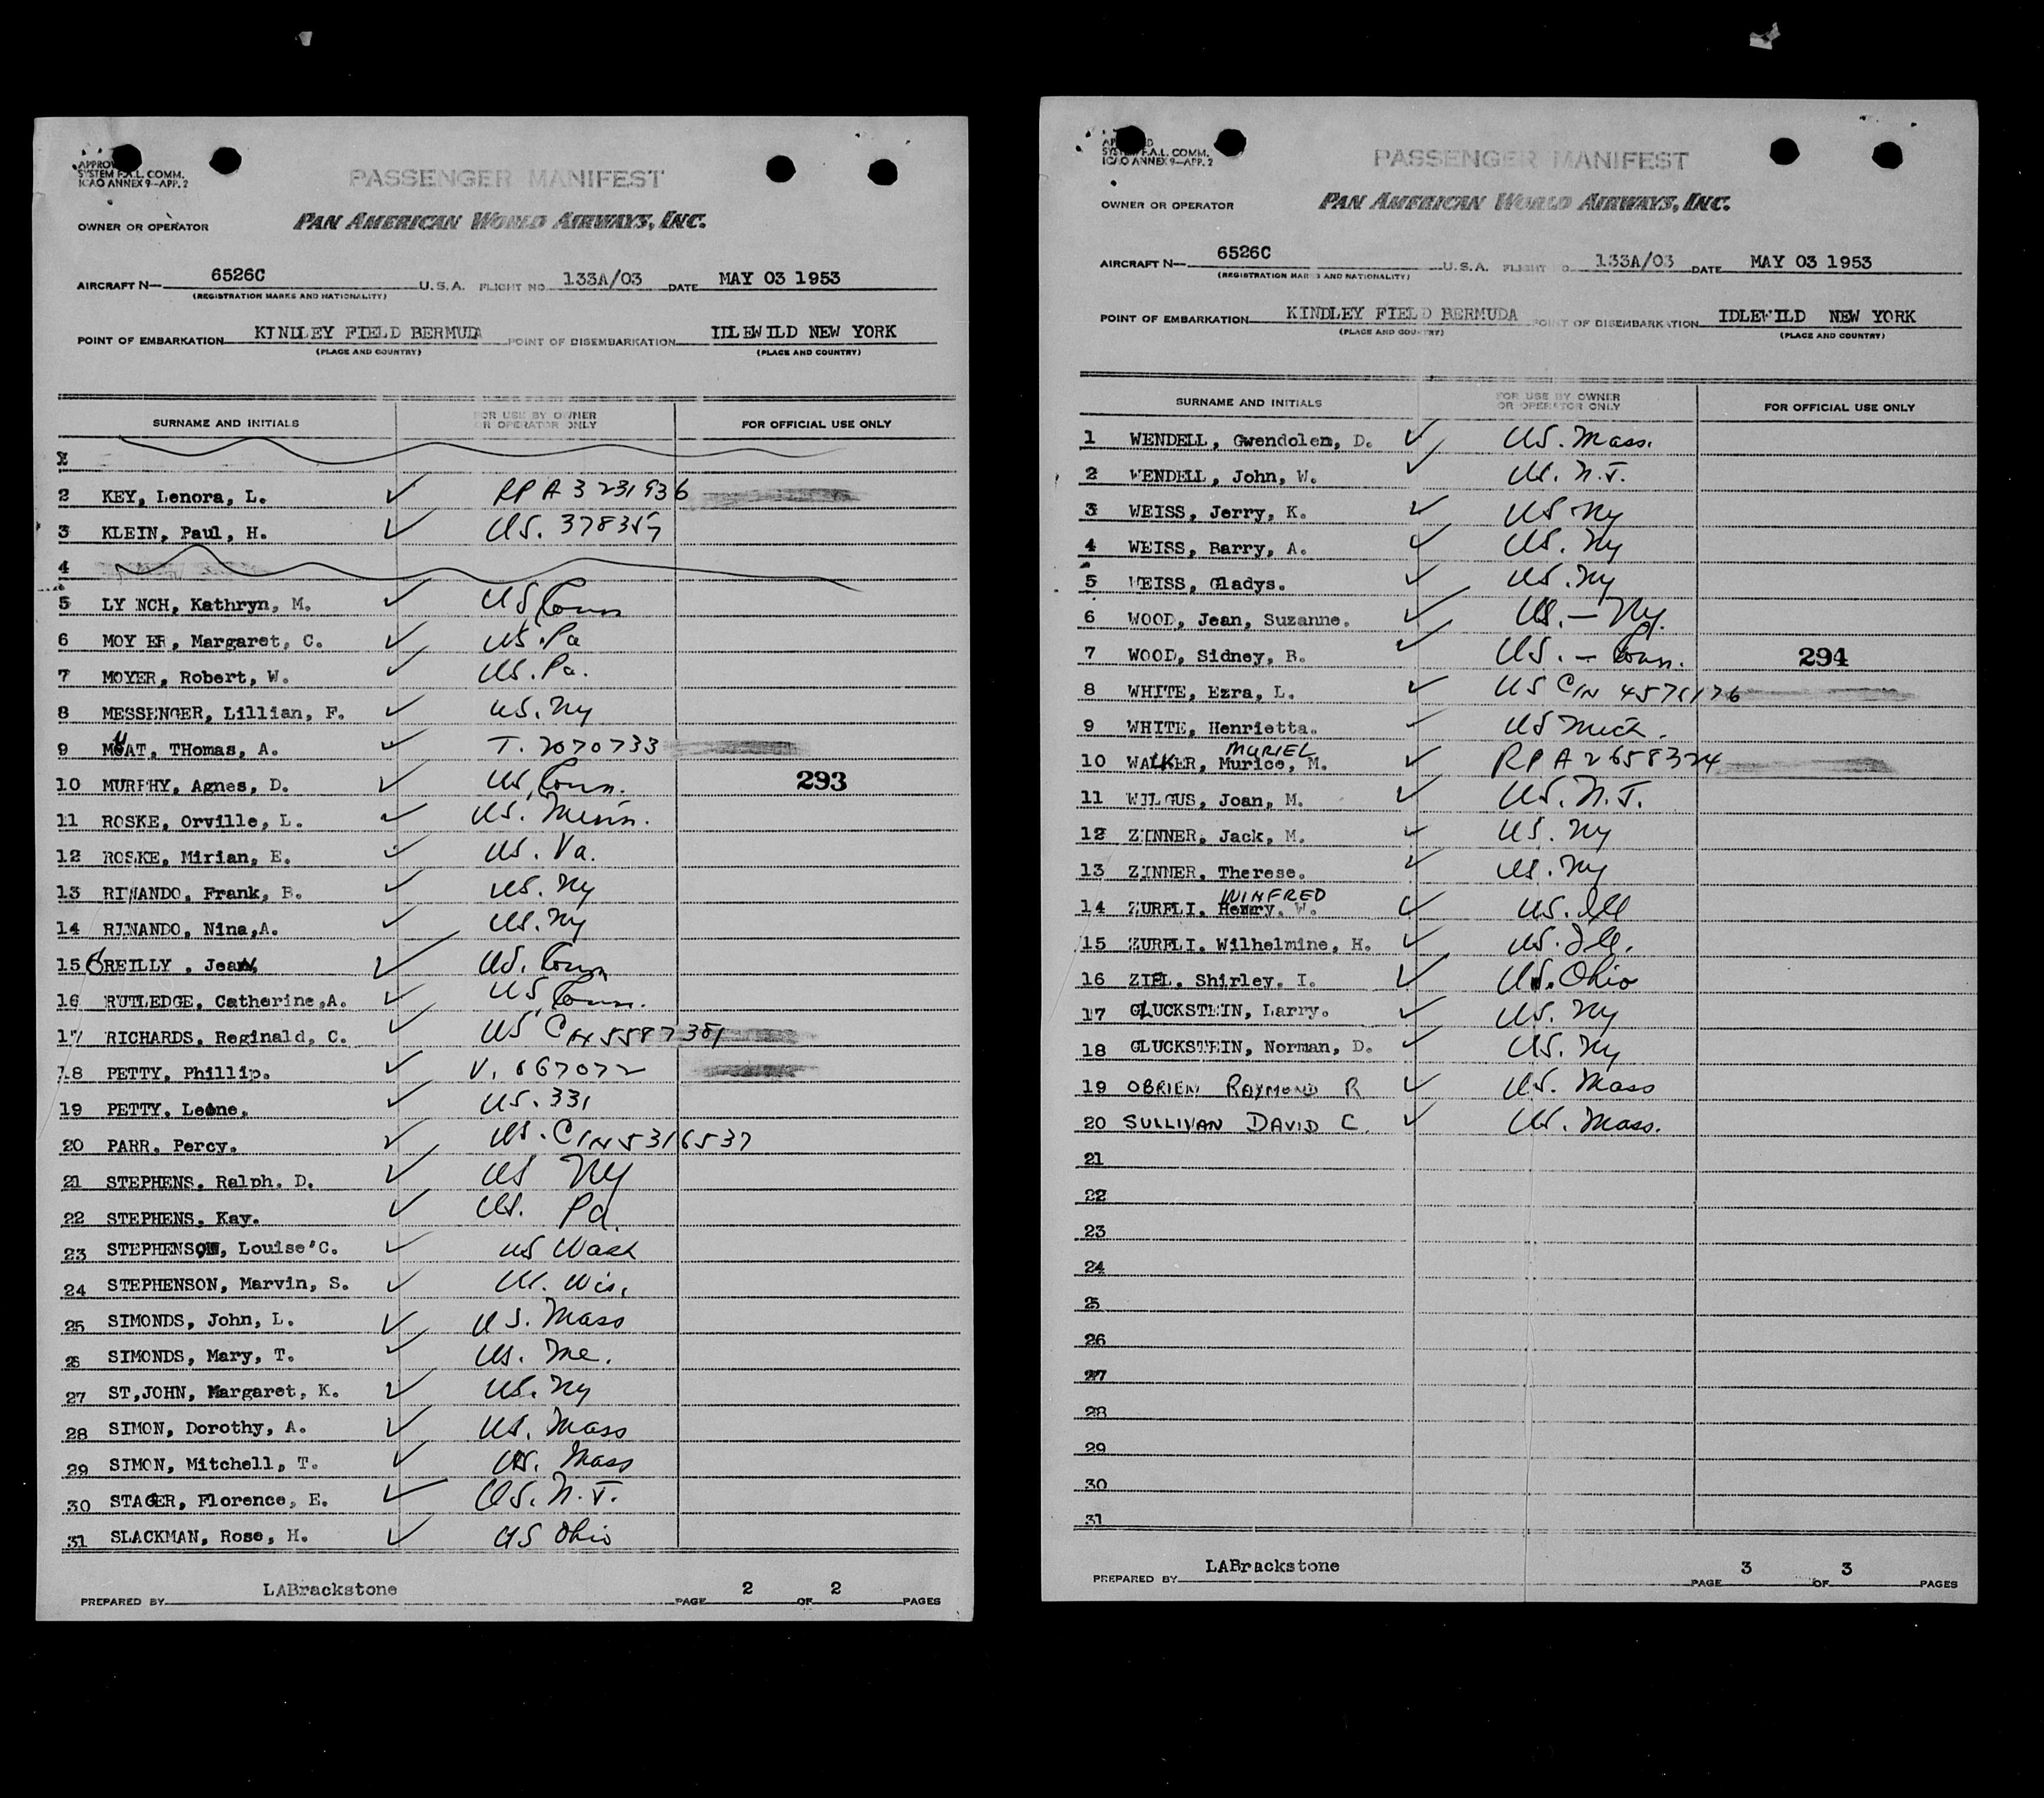 APPROV
SYSTEM F.A.L. COMM.
ICAO ANNEX 9—APP. 2
PASSENGER MANIFEST
OWNER OR OPERATOR PAN AMERICAN WORLD AIRWAYS, INC.
AIRCRAFT N— 6526C U.S.A. FLIGHT NO. 133A/03 DATE MAY 03 1953
(REGISTRATION MARKS AND NATIONALITY)
POINT OF EMBARKATION KINDLEY FIELD BERMUDA POINT OF DISEMBARKATION IDLEWILD NEW YORK
(PLACE AND COUNTRY) (PLACE AND COUNTRY)
SURNAME AND INITIALS FOR USE BY OWNER OR OPERATOR ONLY FOR OFFICIAL USE ONLY
1
2 KEY, Lenora, L. ✓ RP A3231936
3 KLEIN, Paul, H. ✓ US. 378357
4
5 LY NCH, Kathryn, M. ✓ US Conn
6 MOY ER, Margaret, C. ✓ US. Pa
7 MOYER, Robert, W. ✓ US. Pa.
8 MESSENGER, Lillian, F. ✓ US. Ny
9 MUAT, THomas, A. ✓ T. 2070733
10 MURPHY, Agnes, D. ✓ US, Conn. 293
11 ROSKE, Orville, L. ✓ US. Minn.
12 ROSKE, Mirian, E. ✓ US. Va.
13 RINANDO, Frank, B. ✓ US. Ny
14 RINANDO, Nina,A. ✓ US. Ny
15 O'REILLY , Jean, ✓ US. Conn
16 RUTLEDGE, Catherine,A. ✓ US, Conn.
17 RICHARDS, Reginald, C. ✓ US CIN 5587381
18 PETTY, Phillip. ✓ V. 067072
19 PETTY, Leone. ✓ US. 331
20 PARR, Percy. ✓ US. CIN 5316537
21 STEPHENS, Ralph. D. ✓ US Ny
22 STEPHENS, Kay. ✓ US. Pa.
23 STEPHENSON, Louise'C. ✓ US Wash
24 STEPHENSON, Marvin, S. ✓ US. Wis.
25 SIMONDS, John, L. ✓ US. Mass
26 SIMONDS, Mary, T. ✓ US. Me.
27 ST,JOHN, Margaret, K. ✓ US. Ny
28 SIMON, Dorothy, A. ✓ US. Mass
29 SIMON, Mitchell, T. ✓ US. Mass
30 STAGER, Florence, E. ✓ US. N.J.
31 SLACKMAN, Rose, H. ✓ US Ohio
PREPARED BY LABrackstone PAGE 2 OF 2 PAGES
SYSTEM F.A.L. COMM.
ICAO ANNEX 9—APP. 2
PASSENGER MANIFEST
OWNER OR OPERATOR PAN AMERICAN WORLD AIRWAYS, INC.
AIRCRAFT N— 6526C U.S.A. FLIGHT NO. 133A/03 DATE MAY 03 1953
(REGISTRATION MARKS AND NATIONALITY)
POINT OF EMBARKATION KINDLEY FIELD BERMUDA POINT OF DISEMBARKATION IDLEWILD NEW YORK
(PLACE AND COUNTRY) (PLACE AND COUNTRY)
SURNAME AND INITIALS FOR USE BY OWNER OR OPERATOR ONLY FOR OFFICIAL USE ONLY
1 WENDELL, Gwendolen, D. ✓ US. Mass.
2 WENDELL, John, W. ✓ US. N.J.
3 WEISS, Jerry, K. ✓ US Ny
4 WEISS, Barry, A. ✓ US. Ny
5 WEISS, Gladys. ✓ US. Ny
6 WOOD, Jean, Suzanne. ✓ US. — Ny.
7 WOOD, Sidney, B. ✓ US. — Conn. 294
8 WHITE, Ezra, L. ✓ US CIN 4571176
9 WHITE, Henrietta. ✓ US Mich.
MURIEL
10 WALKER, Murice, M. ✓ RP A2658324
11 WILGUS, Joan, M. ✓ US. N.J.
12 ZINNER, Jack, M. ✓ US. Ny
13 ZINNER, Therese. ✓ US. Ny
WINFRED
14 ZURFLI. Henry, W. ✓ US. Ill
15 ZURFLI. Wilhelmine, H. ✓ US. Ill.
16 ZIEL. Shirley. I. ✓ US. Ohio
17 GLUCKSTEIN, Larry. ✓ US. Ny
18 GLUCKSTEIN, Norman, D. ✓ US. Ny
19 OBRIEN RAYMOND R ✓ US. Mass
20 SULLIVAN DAVID C. ✓ US. Mass.
21
22
23
24
25
26
27
28
29
30
31
PREPARED BY LABrackstone PAGE 3 OF 3 PAGES